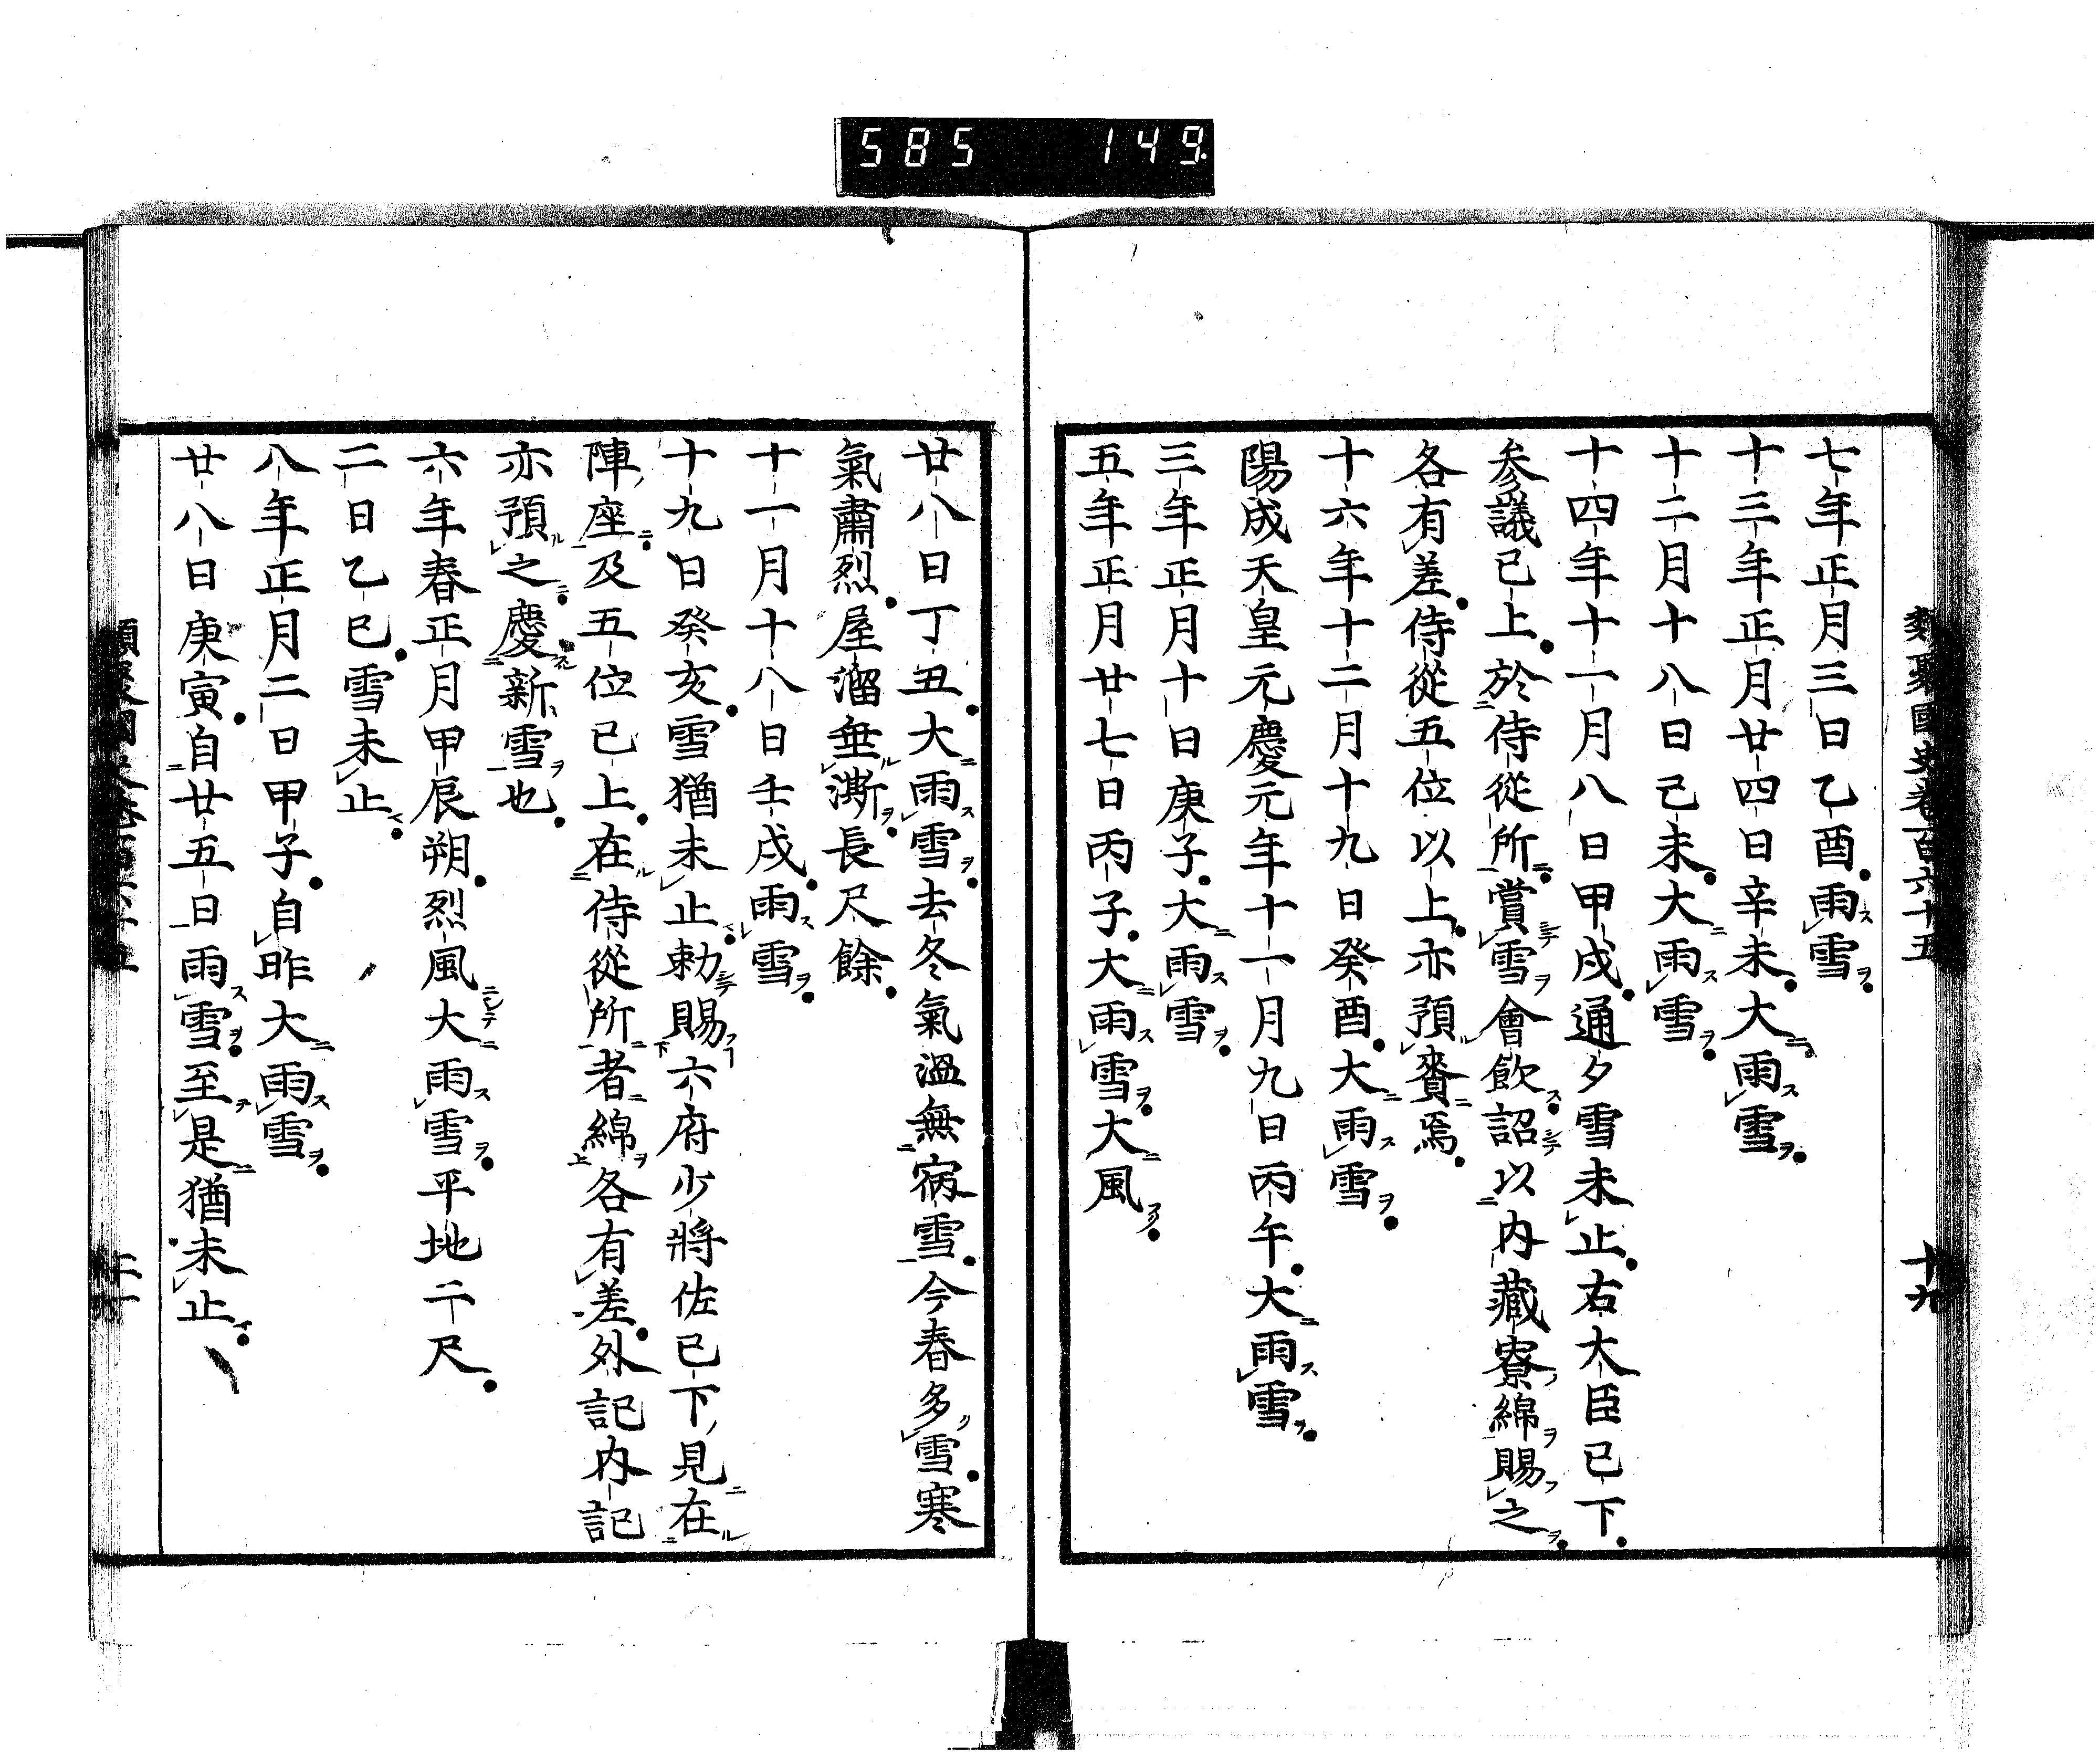 585 149
類聚國史卷百六十五 十九
七年正月三日乙酉雨雪
十三年正月廿四日辛未大雨雪
十二月十八日己未大雨雪
十四年十一月八日甲戌通夕雪未止右大臣已下
参議已上於侍從所賞雪會飲詔以内藏寮綿賜之
各有差侍從五位以上亦預賚焉
十六年十二月十九日癸酉大雨雪
陽成天皇元慶元年十一月九日丙午大雨雪
三年正月十日庚子大雨雪
五年正月廿七日丙子大雨雪大風
廿八日丁丑大雨雪去冬氣溫無宿雪今春多雪寒
氣肅烈屋溜垂澌長尺餘
十一月十八日壬戌雨雪
十九日癸亥雪猶未止勅賜六府少將佐已下見在
陣座及五位已上在侍從所者綿各有差外記内記
亦預之慶新雪也
六年春正月甲辰朔烈風大雨雪平地二尺
二日乙巳雪未止
八年正月二日甲子自昨大雨雪
廿八日庚寅自廿五日雨雪至是猶未止